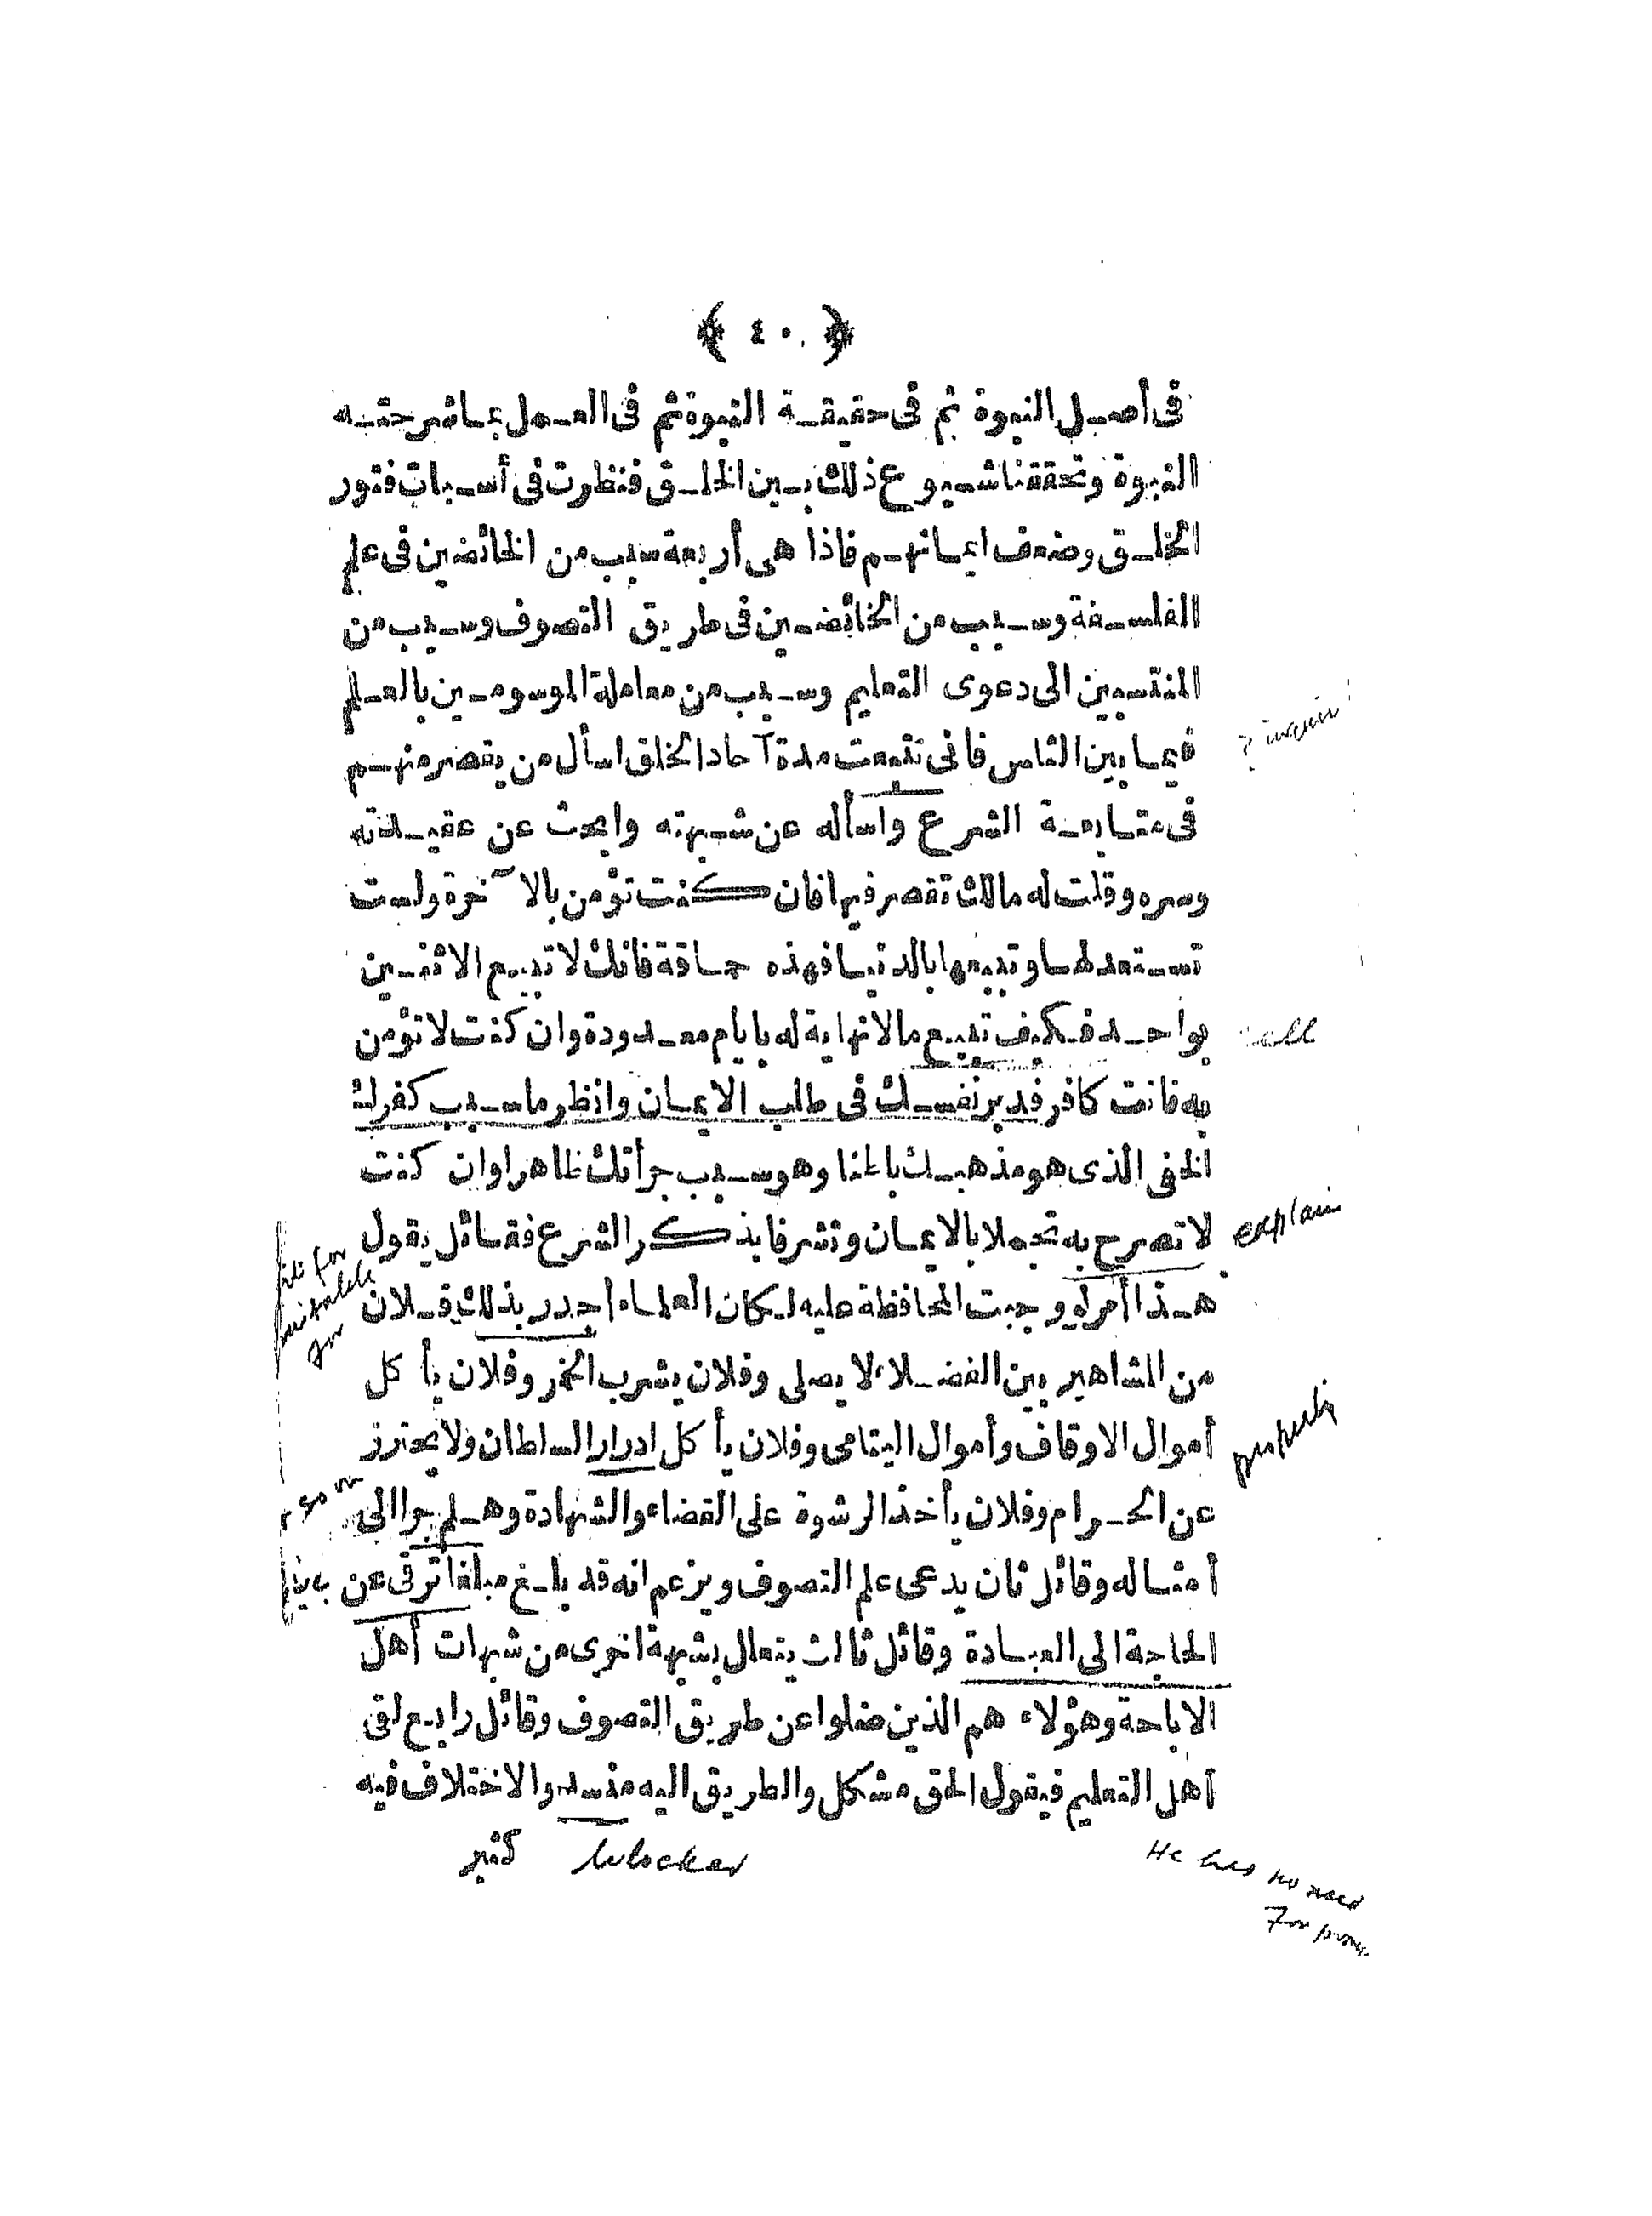 ﴿ ٤٠ ﴾
فى أصل النبوة ثم فى حقيقة النبوة ثم فى العمل بما شرحته
النبوة وتحققنا شيوع ذلك بين الخلق فنظرت فى أسباب فتور
الخلق وضعف ايمانهم فاذا هى أربعة سبب من الخائضين فى علم
الفلسفة وسبب من الخائضين فى طريق التصوف وسبب من
المنتسبين الى دعوى التعليم وسبب من معاملة الموسومين بالعلم
فيما بين الناس فانى تتبعت مدة آحاد الخلق اسأل من يقصر منهم
فى متابعة الشرع واسأله عن شبهته وابحث عن عقيدته
وسره وقلت له مالك تقصر فيها فان كنت تؤمن بالآخرة ولست
تستعد لها وتبيعها بالدنيا فهذه حماقة فانك لا تبيع الاثنين
بواحد فكيف تبيع مالا نهاية له بايام معدودة وان كنت لا تؤمن
به فانت كافر فدبر نفسك فى طلب الايمان وانظر ما سبب كفرك
الخفى الذى هو مذهبك باطنا وهو سبب جرأتك ظاهرا وان كنت
لا تصرح به تجملا بالايمان وتشرفا بذكر الشرع فقائل يقول explain
fit for
suitable
for
هذا أمر لو وجبت المحافظة عليه لكان العلماء أجدر بذلك وفلان
من المشاهير بين الفضلاء لا يصلى وفلان يشرب الخمر وفلان يأكل
أموال الاوقاف وأموال اليتامى وفلان يأكل ادرار السلطان ولا يحترز
property
so on
عن الحرام وفلان يأخذ الرشوة على القضاء والشهادة وهلم جرا الى
أمثاله وقائل ثان يدعى علم التصوف ويزعم انه قد بلغ مبلغا ترقى عن
الحاجة الى العبادة وقائل ثالث يتعلل بشبهة اخرى من شبهات أهل
الاباحة وهؤلاء هم الذين ضلوا عن طريق التصوف وقائل رابع لقى
أهل التعليم فيقول الحق مشكل والطريق اليه منسد والاختلاف فيه
كثير blocked
He has no need
for